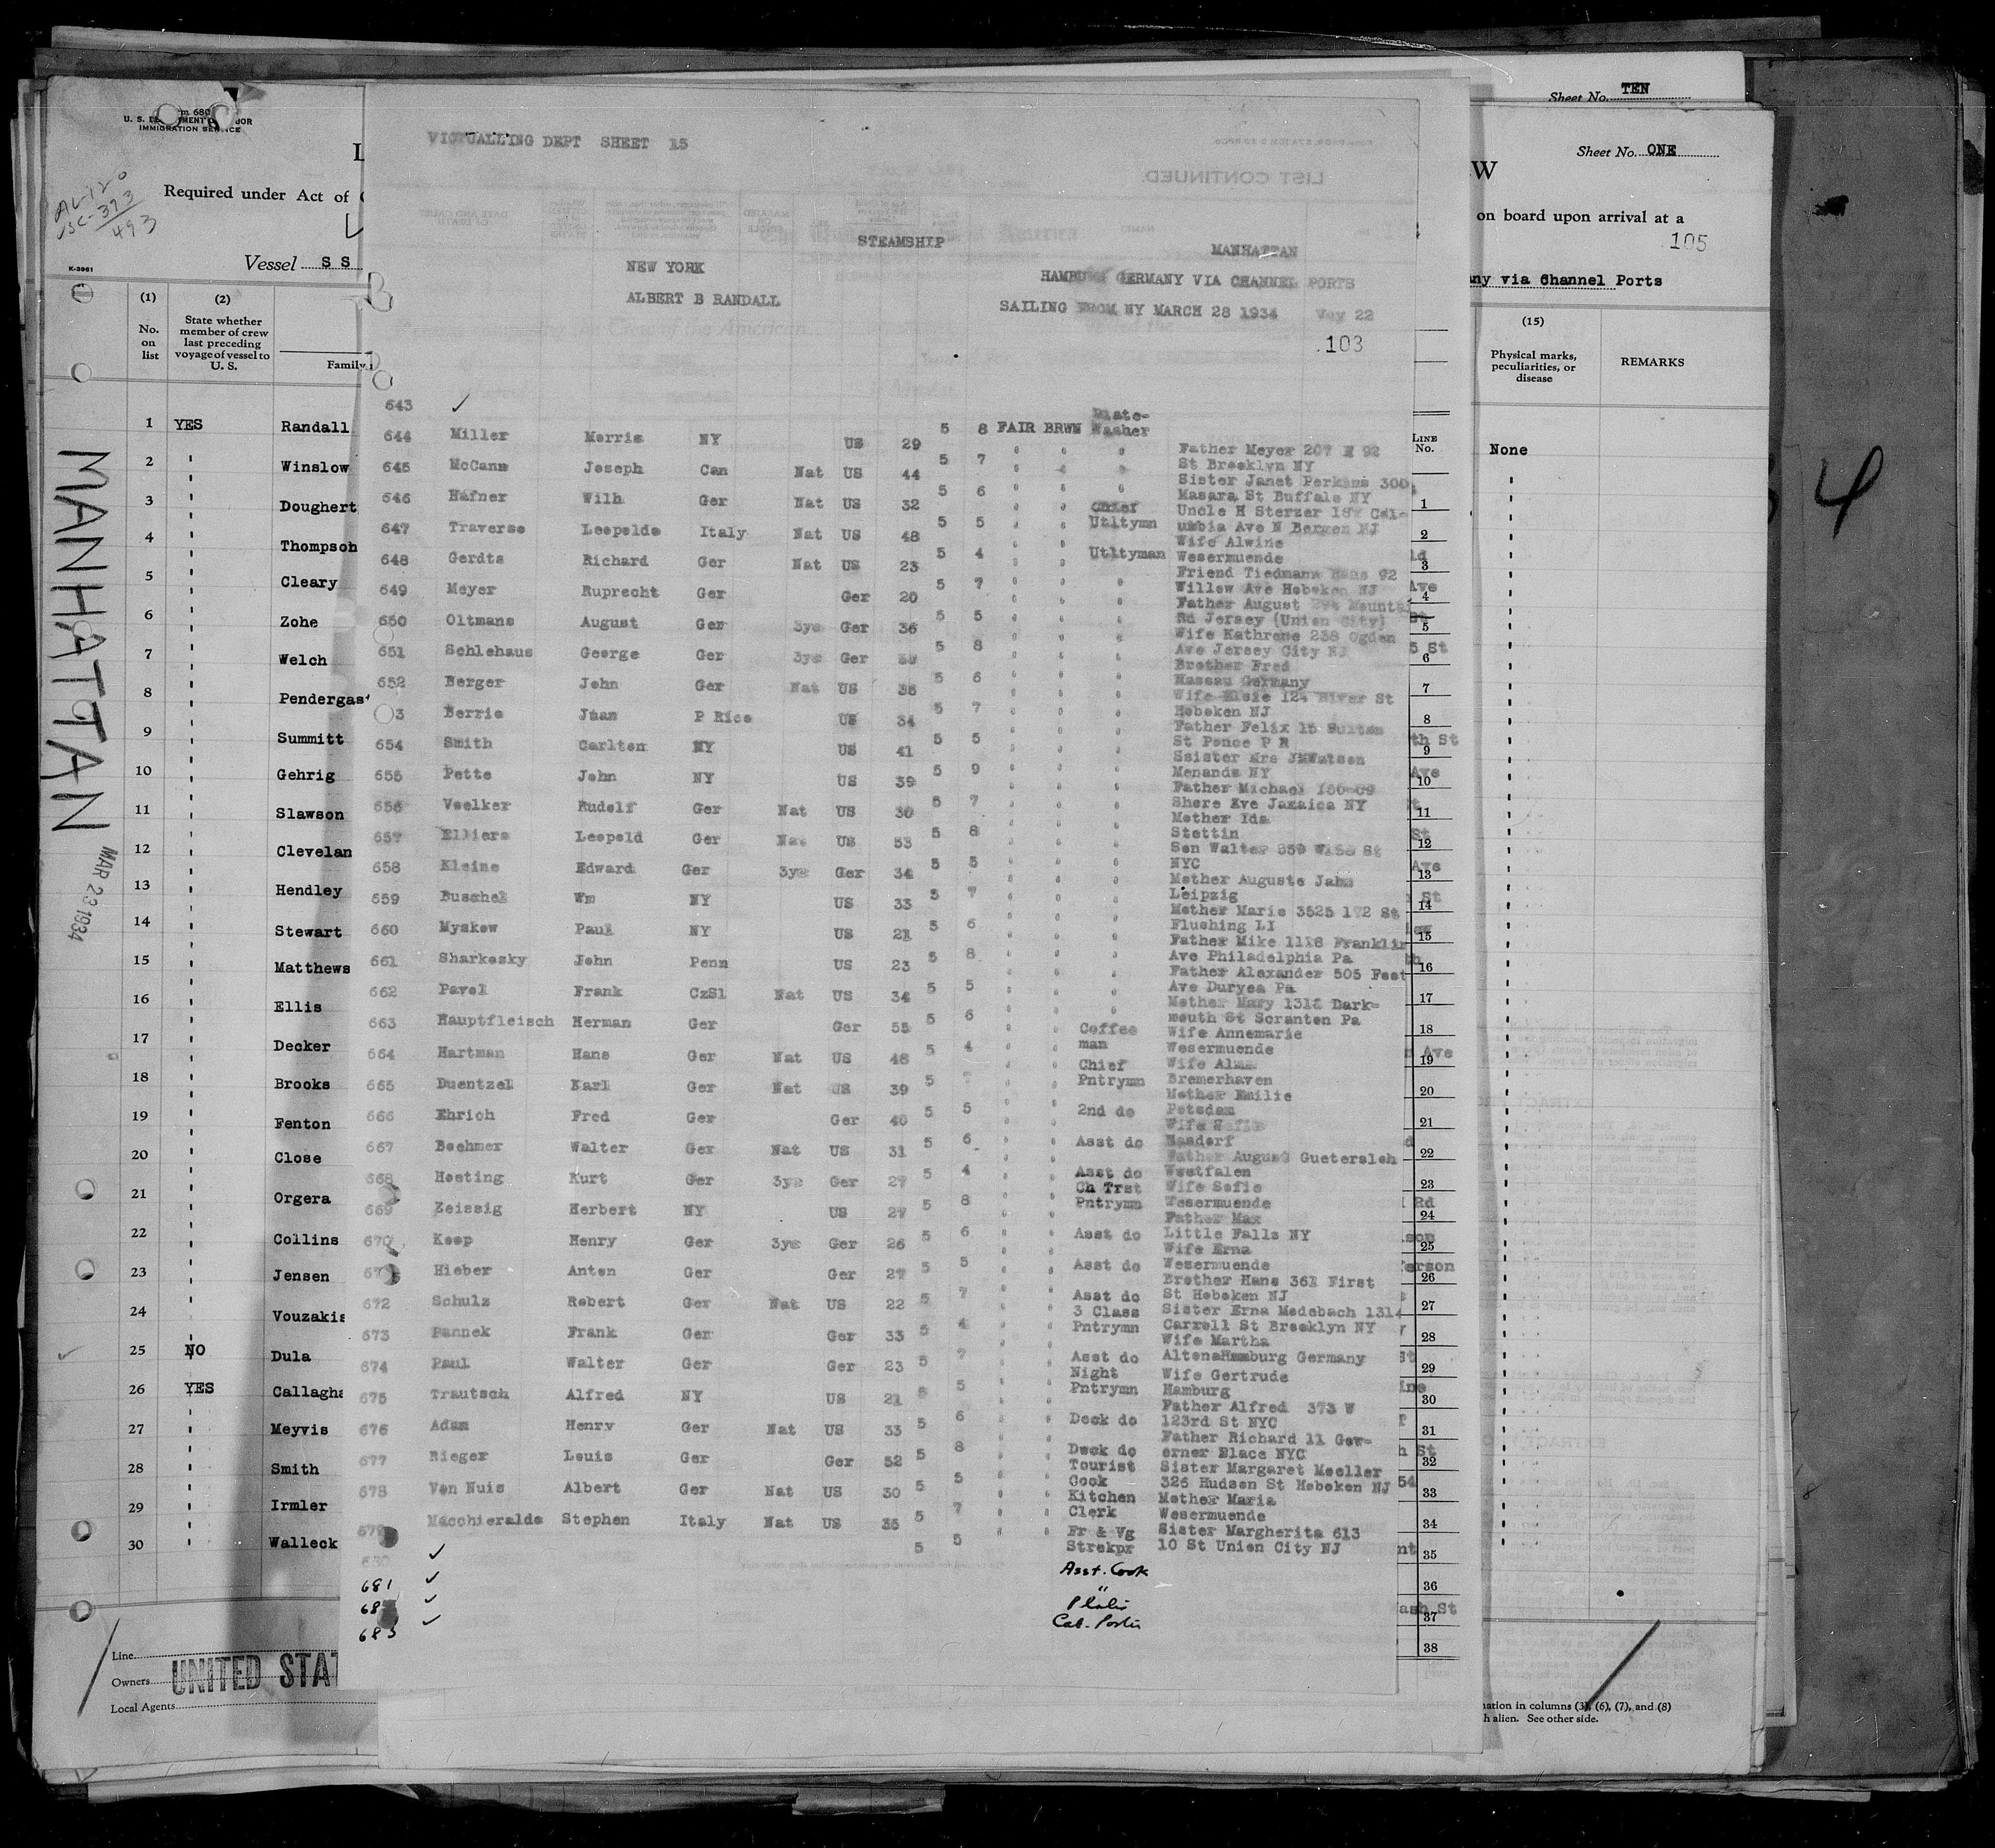 Sheet No. TEN
Sheet No. ONE
U. S.
IMMIGRATION SERVICE
Required under Act of
Vessel SS
K-3961
(1) (2)
No. on list
State whether member of crew last preceding voyage of vessel to U. S.
Family
on board upon arrival at a
105
any via Channel Ports
(15)
Physical marks, peculiarities, or disease
REMARKS
None
MANHATTAN
MAR 23 1934
493
4
1 YES Randall
2 " Winslow
3 " Dougherty
4 " Thompson
5 " Cleary
6 " Zohe
7 " Welch
8 " Pendergast
9 " Summitt
10 " Gehrig
11 " Slawson
12 " Clevelan
13 " Hendley
14 " Stewart
15 " Matthews
16 " Ellis
17 " Decker
18 " Brooks
19 " Fenton
20 " Close
21 " Orgera
22 " Collins
23 " Jensen
24 " Vouzakis
25 NO Dula
26 YES Callagha
27 " Meyvis
28 " Smith
29 " Irmler
30 " Walleck
Line
Owners UNITED STAT
Local Agents
VICTUALLING DEPT SHEET 15
LIST CONTINUED
STEAMSHIP MANHATTAN
NEW YORK HAMBURG GERMANY VIA CHANNEL PORTS
ALBERT B RANDALL SAILING FROM NY MARCH 28 1934 Voy 22
103
643 ✓
644 Miller Morris NY US 29 5 8 FAIR BRWN Plate-Washer
Father Meyer 207 E 92
St Brooklyn NY
645 McCann Joseph Can Nat US 44 5 7 " " "
Sister Janet Perkins 300
Masara St Buffalo NY
646 Hafner Wilh Ger Nat US 32 5 6 " " "
Uncle H Sterzer
umbia Ave N Bergen NJ
647 Traverse Leopoldo Italy Nat US 48 5 5 " " Chief Utltymn
Wife Alwine
Wesermuende
648 Gerdts Richard Ger Nat US 23 5 4 " " Utltyman
Friend Tiedmann Hans 92
Willow Ave Hoboken NJ
649 Meyer Ruprecht Ger Ger 20 5 7 " " "
Father August
Rd Jersey (Union City)
650 Oltmans August Ger 3ys Ger 36 5 5 " " "
Wife Kathrene 238 Ogden
Ave Jersey City NJ
651 Schlehaus George Ger 3ys Ger 5 8 " " "
Brother Fred
Nassau Germany
652 Berger John Ger Nat US 35 5 6 " " "
Wife Elsie 124 River St
Hoboken NJ
3 Berrio Juan P Rico US 34 5 7 " " "
Father Felix 15 Sultan
St Ponce P R
654 Smith Carlton NY US 41 5 5 " " "
Ssister Mrs JHWatson
Menands NY
655 Pette John NY US 39 5 9 " " "
Father Michael 150-09
Shore Eve Jamaica NY
656 Voelker Rudolf Ger Nat US 30 5 7 " " "
Mother Ida
Stettin
657 Elliers Leopold Ger Nat US 53 5 8 " " "
Son Walter
NYC
658 Kleine Edward Ger 3ys Ger 34 5 5 " " "
Mother Auguste Jahn
Leipzig
659 Buschel Wm NY US 33 5 7 " " "
Mother Marie 3525 172 St
Flushing LI
660 Myskow Paul NY US 21 5 6 " " "
Father Mike 1118 Franklin
Ave Philadelphia Pa
661 Sharkosky John Penn US 23 5 8 " " "
Father Alexander 505 Foot
Ave Duryea Pa
662 Pavel Frank CzSl Nat US 34 5 5 " " "
Mother Mary 1318 Dark-
mouth St Scranton Pa
663 Hauptfleisch Herman Ger Ger 55 5 6 " " Coffee man
Wife Annemarie
Wesermuende
664 Hartman Hans Ger Nat US 48 5 4 " " Chief Pntrymn
Wife Alma
Bremerhaven
665 Duentzel Karl Ger Nat US 39 5
Mother Emilie
Potsdam
666 Ehrich Fred Ger Ger 40 5 5 " " 2nd do
Wife
667 Boehmer Walter Ger Nat US 31 5 6 " " Asst do
Father August Guetersloh
Westfalen
668 Hosting Kurt Ger 3ys Ger 27 5 4 " " Asst do
Ch Trst
Wife Sofie
Wesermuende
669 Zeissig Herbert NY US 27 5 8 " " Pntrymn
Father Max
Little Falls NY
670 Koop Henry Ger 3ys Ger 26 5 6 " " Asst do
Wife Erna
Wesermuende
67 Hieber Anton Ger Ger 27 5 5 " " Asst do
Brother Hans 361 First
St Hoboken NJ
672 Schulz Robert Ger Nat US 22 5 7 " " Asst do
3 Class
Sister Erna Medebach 1314
Carroll St Brooklyn NY
673 Pannek Frank Ger Ger 33 5 4 " " Pntrymn
Wife Martha
Altona Hamburg Germany
674 Paul Walter Ger Ger 23 5 7 " " Asst do
Night
Wife Gertrude
Hamburg
675 Trautsch Alfred NY US 21 5 5 " " Pntrymn
Father Alfred 373 W
123rd St NYC
676 Adam Henry Ger Nat US 33 5 6 " " Deck do
Father Richard 11 Gov-
ernor Place NYC
677 Rieger Louis Ger Ger 52 5 8 " " Deck do
Tourist
Sister Margaret Moeller
326 Hudson St Hoboken NJ
678 Von Nuis Albert Ger Nat US 30 5 5 " " Cook
Kitchen
Mother Maria
Wesermuende
679 Macchieralde Stephen Italy Nat US 35 5 7 " " Clerk
Fr & Vg
Sister Margherita 613
10 St Union City NJ
5 5 Strekpr
680 ✓ Asst. Cook
681 ✓ "
68 ✓
683 ✓ Cab. Porter
LINE No.
1
2
3
4
5
6
7
8
9
10
11
12
13
14
15
16
17
18
19
20
21
22
23
24
25
26
27
28
29
30
31
32
33
34
35
36
37
38
ation in columns (3), (6), (7), and (8)
h alien. See other side.